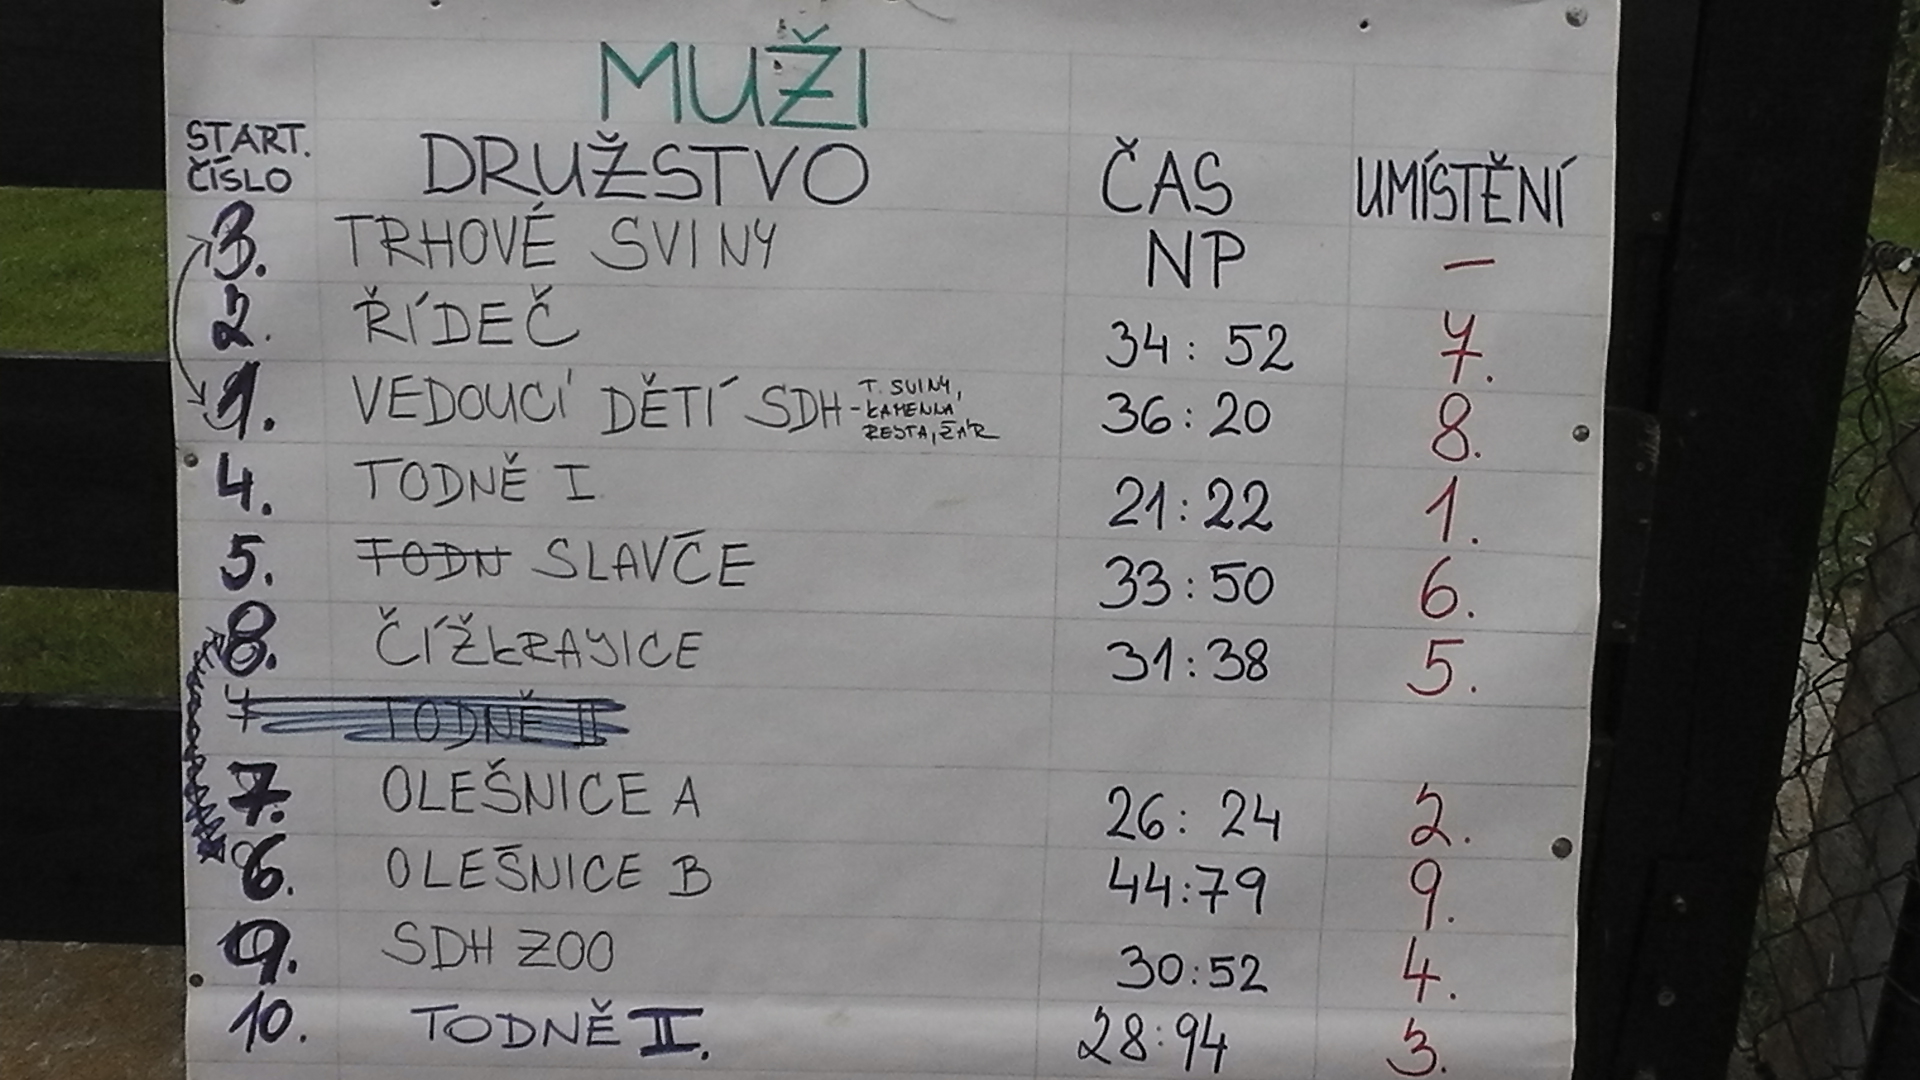 MUŽI
START. ČÍSLO DRUŽSTVO ČAS UMÍSTĚNÍ
3. TRHOVÉ SVINY NP –
2. ŘÍDEČ 34:52 7.
1. VEDOUCÍ DĚTÍ SDH - T. SVINY, KAMENNÁ, RESTA, ŽÁR 36:20 8.
4. TODNĚ I 21:22 1.
5. TODN SLAVČE 33:50 6.
8. ČÍŽKRAJICE 31:38 5.
7 TODNĚ II
7. OLEŠNICE A 26:24 2.
6. OLEŠNICE B 44:79 9.
9. SDH ZOO 30:52 4.
10. TODNĚ II. 28:94 3.